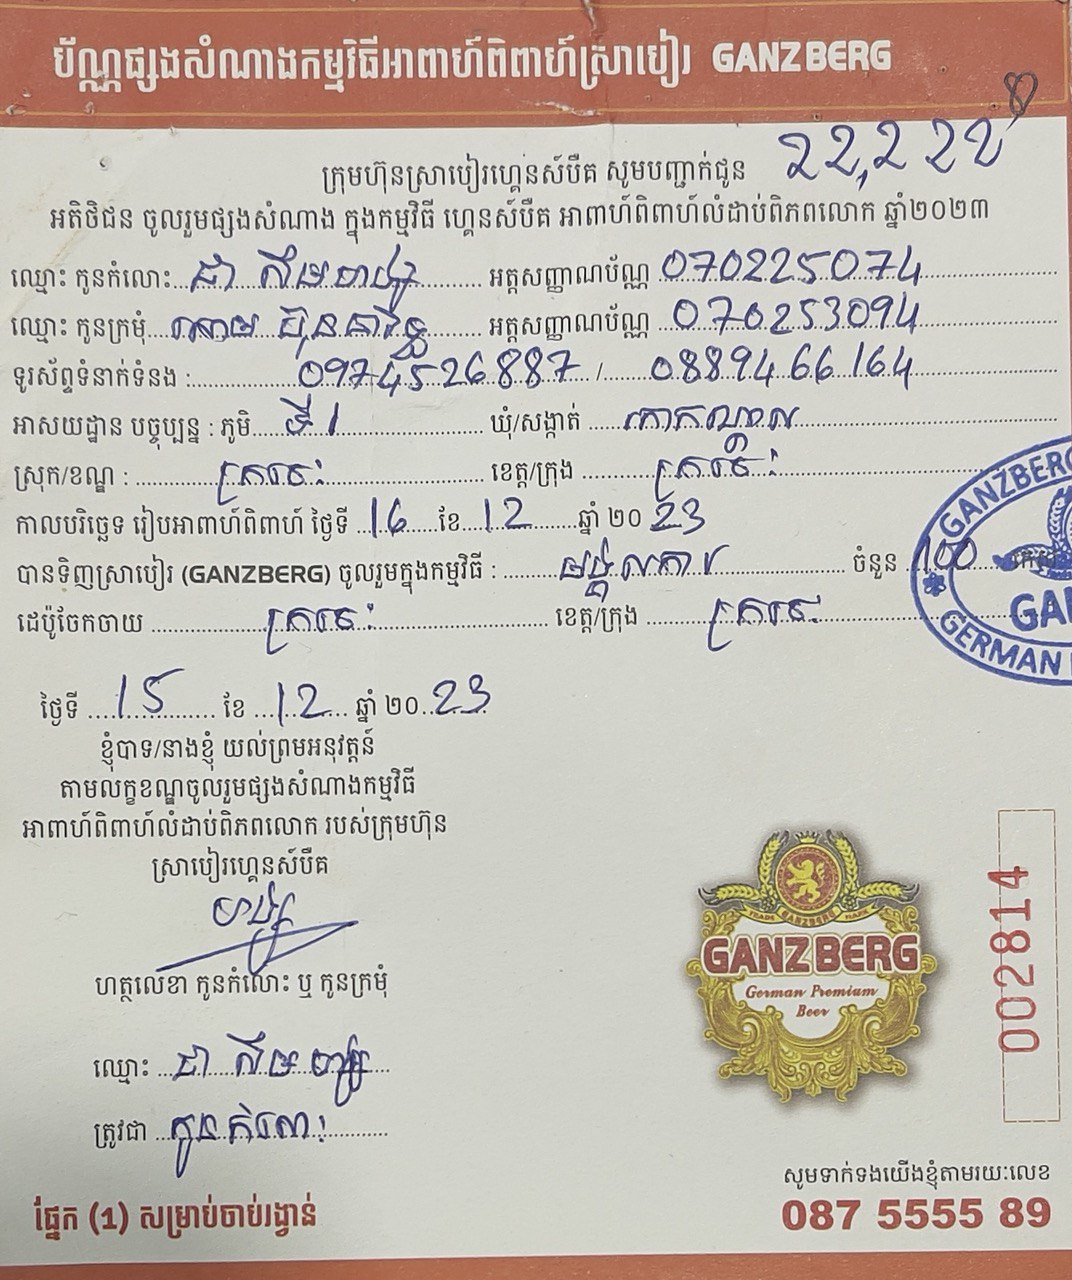 ប័ណ្ណផ្សងសំណាងកម្មវិធីអាពាហ៍ពិពាហ៍ស្រាបៀរ GANZBERG
22,222
ក្រុមហ៊ុនស្រាបៀរហ្គេនស៍បឺគ សូមបញ្ជាក់ជូន
អតិថិជន ចូលរួមផ្សងសំណាង ក្នុងកម្មវិធី ហ្គេនស៍បឺគ អាពាហ៍ពិពាហ៍លំដាប់ពិភពលោក ឆ្នាំ២០២៣
ឈ្មោះ កូនកំលោះ ជា ស៊ីម អត្តសញ្ញាណប័ណ្ណ 070225074
ឈ្មោះ កូនក្រមុំ អត្តសញ្ញាណប័ណ្ណ 070253094
ទូរស័ព្ទទំនាក់ទំនង : 0974526887 / 0889466164
អាសយដ្ឋាន បច្ចុប្បន្ន : ភូមិ ទី1 ឃុំ/សង្កាត់
ស្រុក/ខណ្ឌ : ក្រចេះ ខេត្ត/ក្រុង ក្រចេះ
កាលបរិច្ឆេទ រៀបអាពាហ៍ពិពាហ៍ ថ្ងៃទី 16 ខែ 12 ឆ្នាំ ២០ 23
បានទិញស្រាបៀរ (GANZBERG) ចូលរួមក្នុងកម្មវិធី : មង្គលការ ចំនួន 100
ដេប៉ូចែកចាយ ក្រចេះ ខេត្ត/ក្រុង ក្រចេះ
GANZBERG
GERMAN
ថ្ងៃទី 15 ខែ 12 ឆ្នាំ ២០ 23
ខ្ញុំបាទ/នាងខ្ញុំ យល់ព្រមអនុវត្តន៍
តាមលក្ខខណ្ឌចូលរួមផ្សងសំណាងកម្មវិធី
អាពាហ៍ពិពាហ៍លំដាប់ពិភពលោក របស់ក្រុមហ៊ុន
ស្រាបៀរហ្គេនស៍បឺគ
ហត្ថលេខា កូនកំលោះ ឬ កូនក្រមុំ
GANZBERG
German Premium
Beer
002814
ឈ្មោះ ជា ស៊ីម
ត្រូវជា កូនកំលោះ
សូមទាក់ទងយើងខ្ញុំតាមរយៈលេខ
087 5555 89
ផ្នែក (1) សម្រាប់ចាប់រង្វាន់